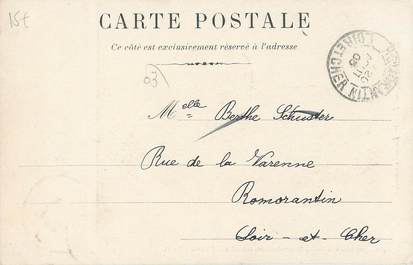 15€
CARTE POSTALE
Ce côté est exclusivement réservé à l'adresse
03
LOIR-ET-CHER
Melle Berthe Schuster
Rue de la Varenne
Romorantin
Loir-et-Cher